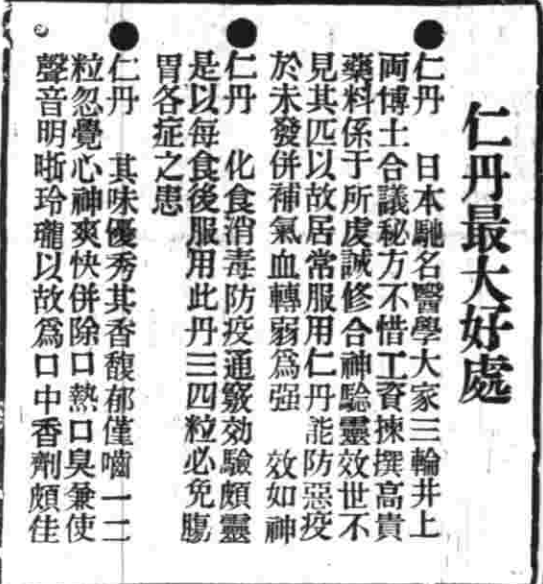 仁丹最大好處
●仁丹　日本馳名醫學大家三輪井上
両博士合議秘方不惜工資揀撰高貴
藥料係于所虔誠修合神驗靈效世不
見其匹以故居常服用仁丹能防惡疫
於未發併補氣血轉弱爲强　效如神
●仁丹　化食消毒防疫通竅効驗頗靈
是以每食後服用此丹三四粒必免腸
胃各症之患
●仁丹　其味優秀其香馥郁僅嚙一二
粒忽覺心神爽快併除口熱口臭兼使
聲音明晰玲瓏以故爲口中香劑頗佳